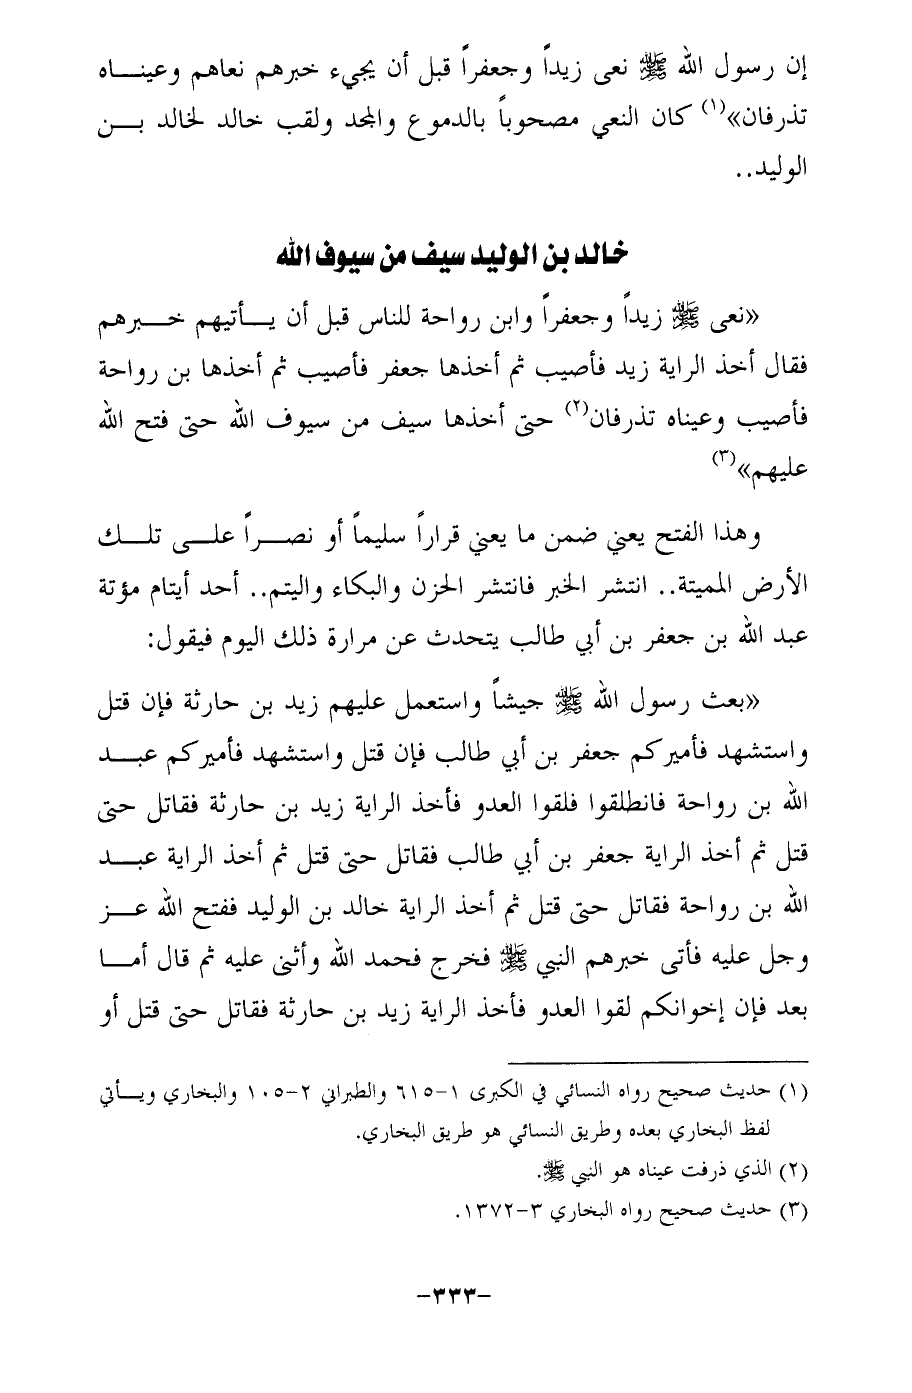 إن رسول الله ﷺ نعى زيداً وجعفراً قبل أن يجيء خبرهم نعاهم وعينـــاه
تذرفان»(١) كان النعي مصحوباً بالدموع والمجد ولقب خالد لخالد بـــن
الوليد..
خالد بن الوليد سيف من سيوف الله
«نعى ﷺ زيداً وجعفراً وابن رواحة للناس قبل أن يـــأتيهم خـــبرهم
فقال أخذ الراية زيد فأصيب ثم أخذها جعفر فأصيب ثم أخذها بن رواحة
فأصيب وعيناه تذرفان(٢) حتى أخذها سيف من سيوف الله حتى فتح الله
عليهم»(٣)
وهذا الفتح يعني ضمن ما يعني قراراً سليماً أو نصـــراً علـــى تلـــك
الأرض المميتة.. انتشر الخبر فانتشر الحزن والبكاء واليتم.. أحد أيتام مؤتة
عبد الله بن جعفر بن أبي طالب يتحدث عن مرارة ذلك اليوم فيقول:
«بعث رسول الله ﷺ جيشاً واستعمل عليهم زيد بن حارثة فإن قتل
واستشهد فأميركم جعفر بن أبي طالب فإن قتل واستشهد فأميركم عبـــد
الله بن رواحة فانطلقوا فلقوا العدو فأخذ الراية زيد بن حارثة فقاتل حتى
قتل ثم أخذ الراية جعفر بن أبي طالب فقاتل حتى قتل ثم أخذ الراية عبـــد
الله بن رواحة فقاتل حتى قتل ثم أخذ الراية خالد بن الوليد ففتح الله عـــز
وجل عليه فأتى خبرهم النبي ﷺ فخرج فحمد الله وأثنى عليه ثم قال أمـــا
بعد فإن إخوانكم لقوا العدو فأخذ الراية زيد بن حارثة فقاتل حتى قتل أو
(١) حديث صحيح رواه النسائي في الكبرى ١-٦١٥ والطبراني ٢-١٠٥ والبخاري ويـــأتي
لفظ البخاري بعده وطريق النسائي هو طريق البخاري.
(٢) الذي ذرفت عيناه هو النبي ﷺ.
(٣) حديث صحيح رواه البخاري ٣-١٣٧٢.
-٣٣٣-